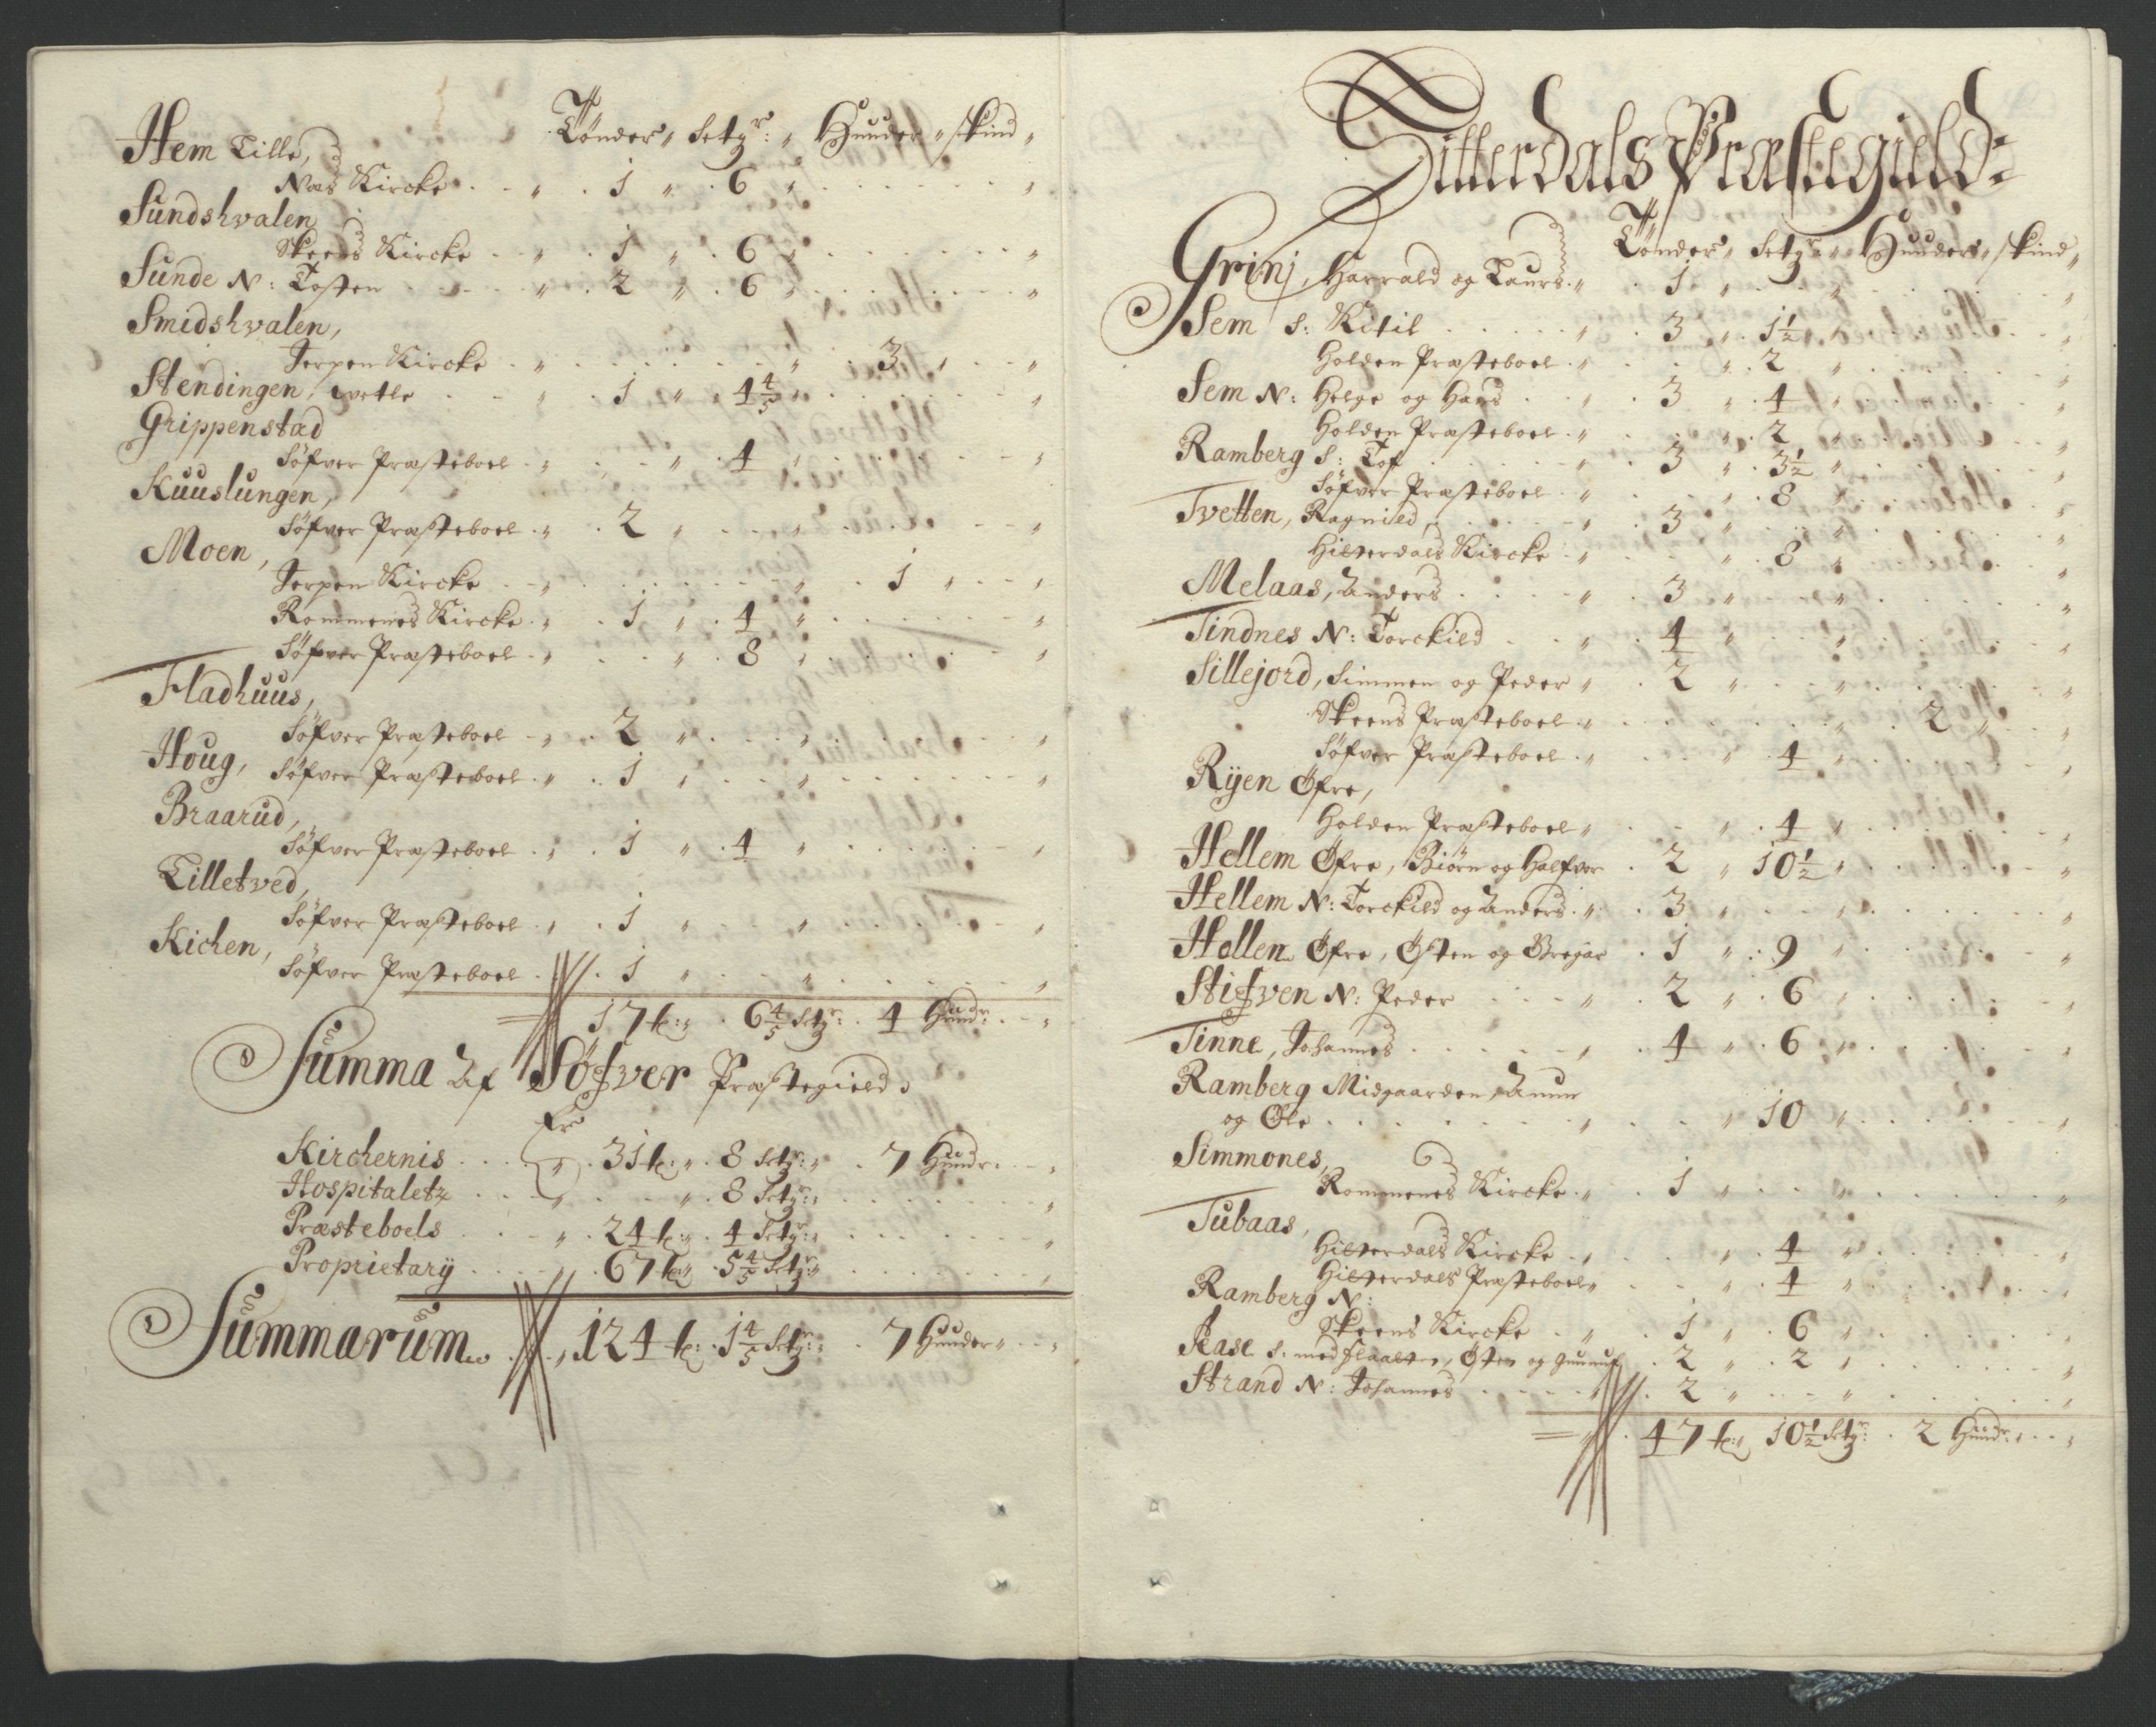 Tønder „ Setgr: „ Hunder „ skind „
Hem Lille,
Næs Kircke „ 1 „ 6 „ „
Sundshvalen
Skeens Kircke „ 1 „ 6 „ „
Sunde N: Tosten „ 2 „ 6 „ „
Smidshvalen,
Jerpen Kircke „ „ 3 „ „
Stendingen, vetle „ 1 „ 4 4/5 „ „
Grippenstad
Söfver Præsteboel „ „ 4 „ „
Kuuslungen,
Söfver Præsteboel „ 2 „ „ „
Moen,
Jerpen Kircke „ „ 1 „ „
Rommenes Kircke „ 1 „ 4 „ „
Söfver Præsteboel „ „ 8 „ „
Fladhuus,
Söfver Præsteboel „ 2 „ „ „
Houg, Söfver Præsteboel „ 1 „ „ „
Braarud,
Söfver Præsteboel „ 1 „ 4 „ „
Lilletved,
Söfver Præsteboel „ 1 „ „ „
Kichen,
Söfver Præsteboel 1 „ „ „
17 t: „ 6 4/5 Setgr: 4 Hundr: „
Summa Af Söfver Præstegield,
Er
Kirchernis „ 31 t: „ 8 Setgr: „ 7 Hundr: „
Hospitaletz „ „ 8 Setgr: „ „
Præsteboels „ 24 t: „ 4 Setgr: „ „
Proprietarij „ 67 t: „ 5 4/5 Setgr: „ „
Summarum „ 124 t: 1 4/5 Setgr: „ 7 Hunder „ „
Hitterdals Præstegield:
Tønder „ Setgr „ Hunder „ skind „
Grinj, Harrald og Laurs „ 1 „ „ „
Sem S: Kitil „ 3 „ 1 1/2 „ „
Holden Præsteboel „ „ 2 „ „
Sem N: Helge og Hans „ 3 „ 4 „ „
Holden Præsteboel „ „ 2 „ „
Ramberg S: Tof „ 3 „ 3 1/2 „ „
Söfver Præsteboel „ „ 8 „ „
Tvetten, Ragnild, „ 3 „ „ „
Hitterdals Kircke „ „ 8 „ „
Melaas, Anders „ 3 „ „ „
Tindnes N: Torckild „ 4 „ „ „
Sillejord, Simmen og Peder „ 2 „ „ „
Skeens Præsteboel „ „ 2 „ „
Söfver Præsteboel „ „ 4 „ „
Rÿen Øfre,
Holden Præsteboel „ „ 4 „ „
Hellem Øfre, Biörn og Halfvor 2 „ 10 1/2 „ „
Hellem N: Torckild og Anders „ 3 „ „ „
Hellen Øfre, Østen og Gregar 1 „ 9 „ „
Stifven N: Peder „ 2 „ 6 „ „
Tinne, Johannes „ 4 „ 6 „ „
Ramberg Midgaarden, Anun
og Ole „ „ 10 „ „
Simmones,
Rommenes Kircke „ 1 „ „ „
Tubaas,
Hitterdals Kircke „ „ 4 „ „
Hitterdals Præsteboel „ „ 4 „ „
Ramberg N:
Skeens Kircke „ 1 „ 6 „ „
Aase S. med Flaaten, Østen og Gunnuf 2 „ 2 „ „
Strand N: Johannes „ 2 „ „ „
47 t: „ 10 1/2 Setgr: 2 Hundr: „